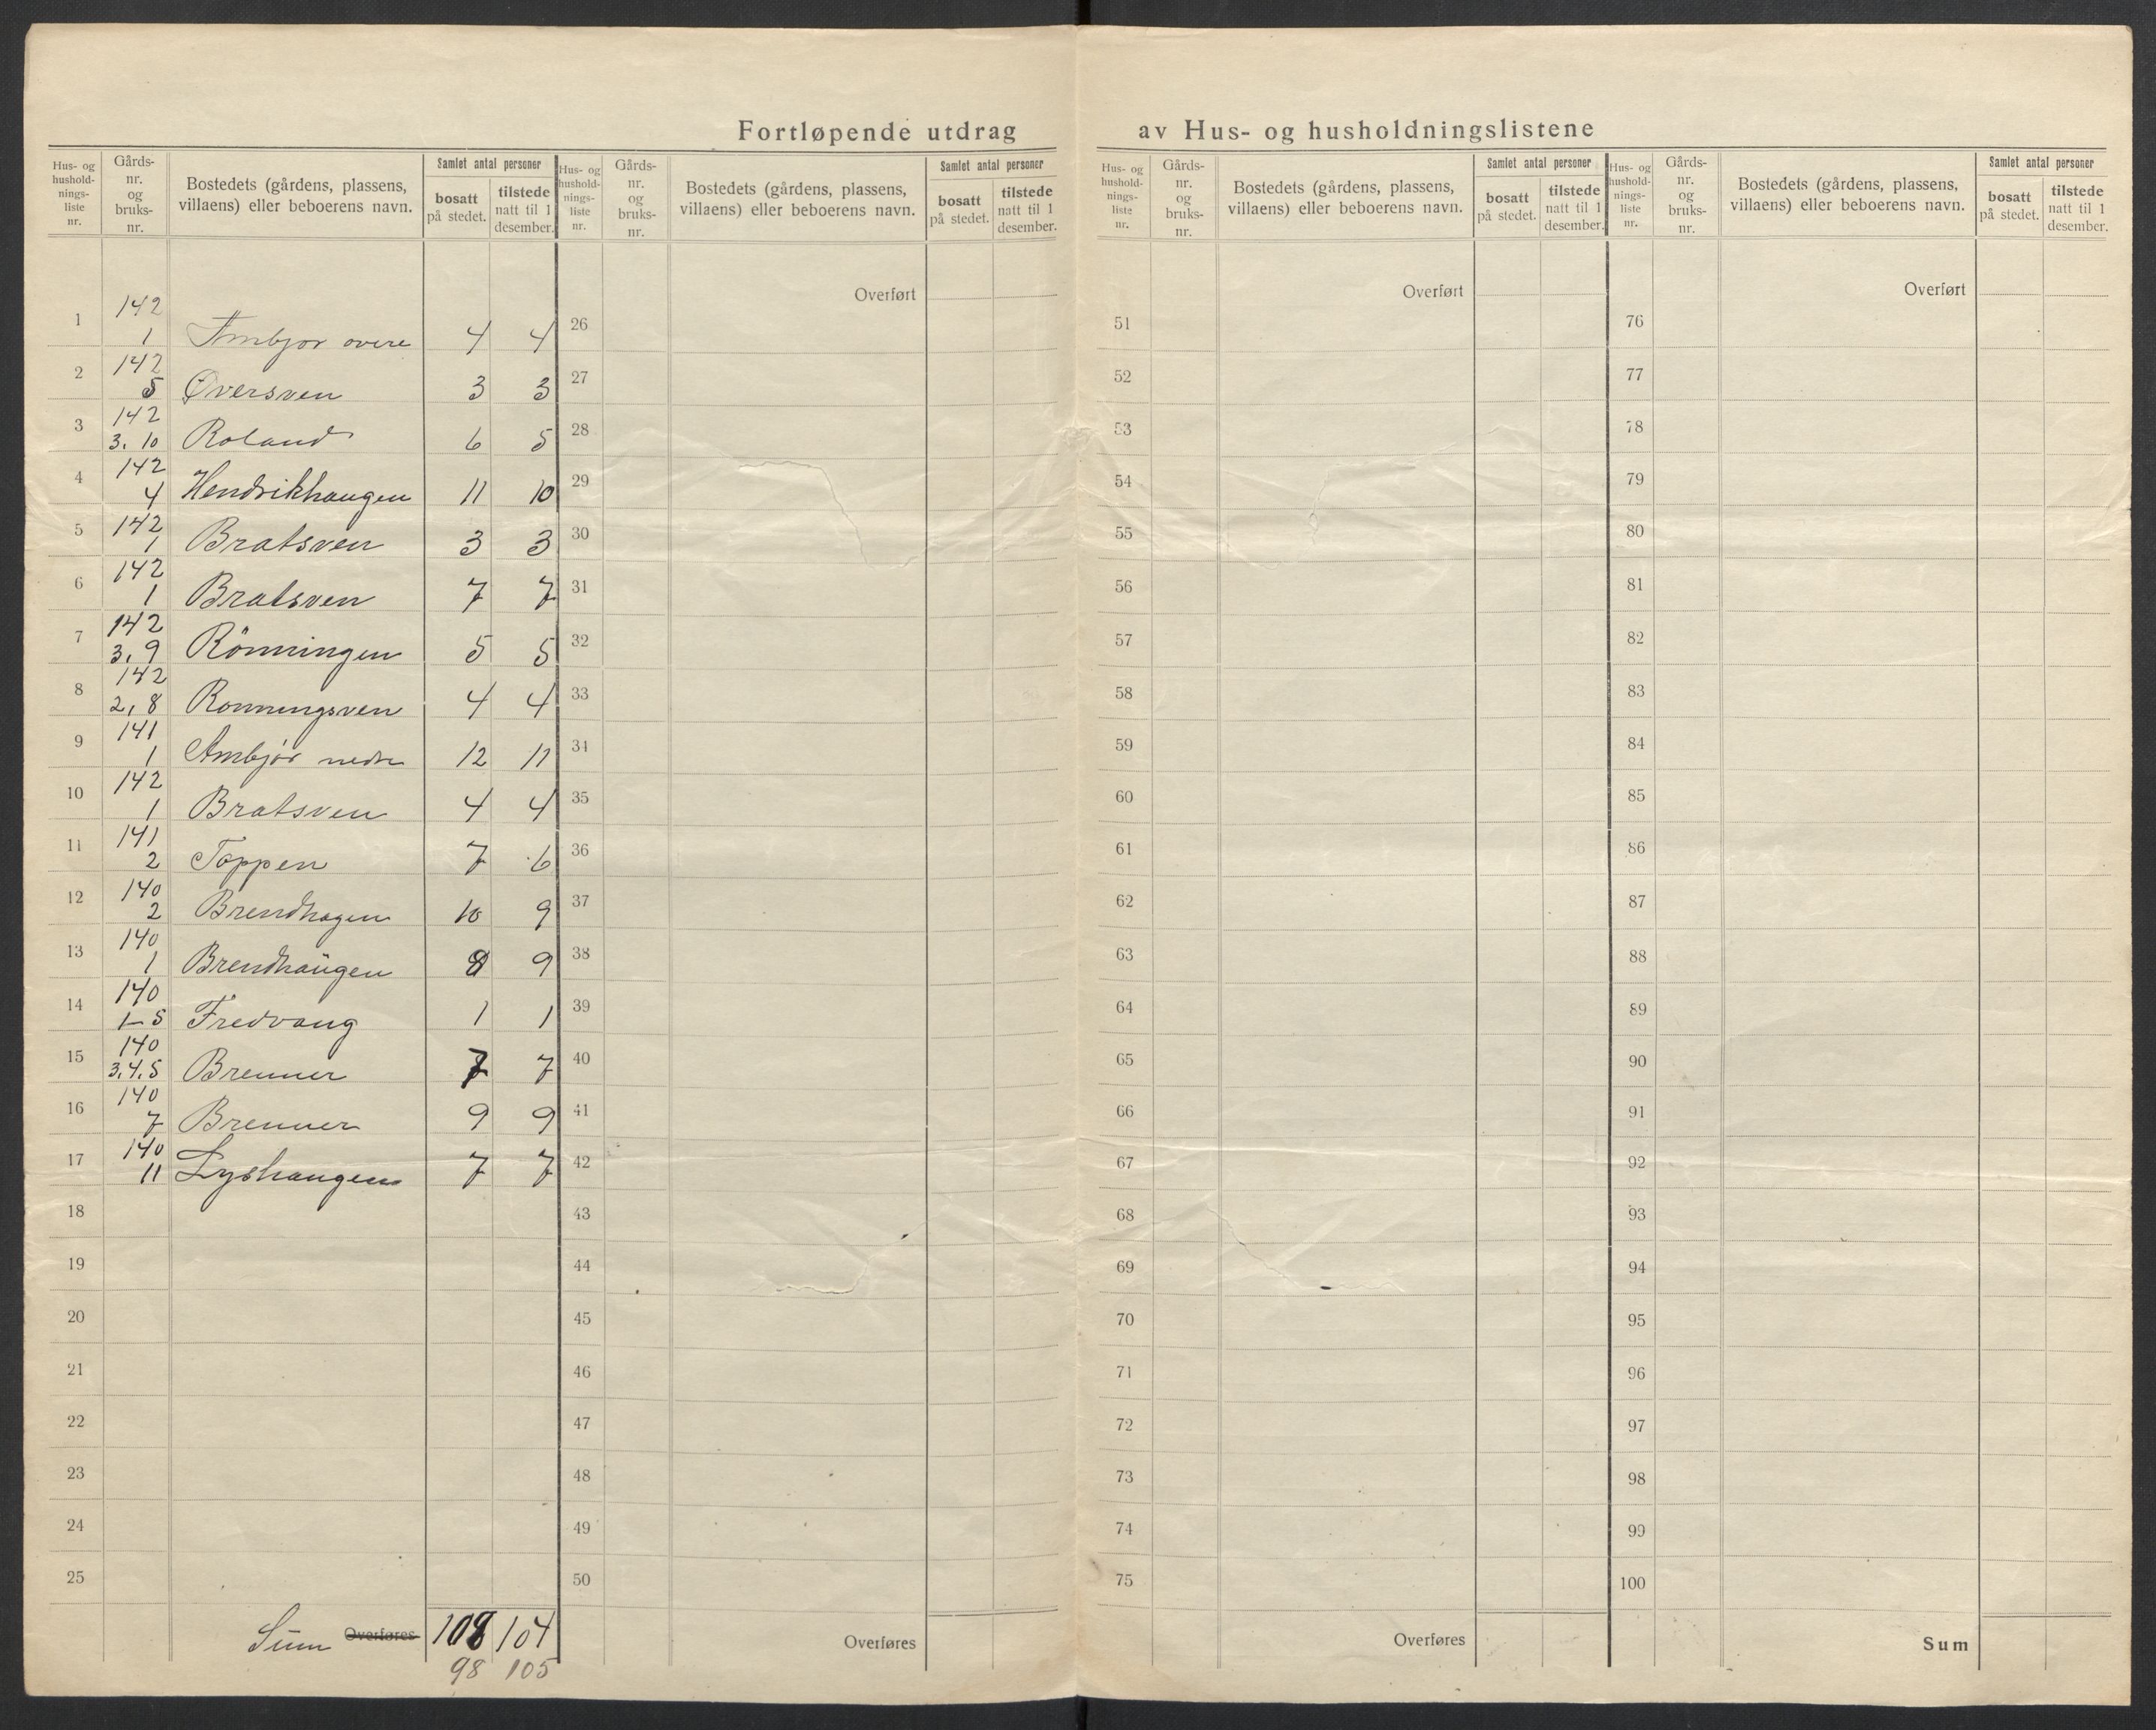 Fortløpende utdrag av Hus- og husholdningslistene
Hus- og hushold-nings-liste nr. Gårds-nr. og bruks-nr. Bostedets (gårdens, plassens, villaens) eller beboerens navn. Samlet antal personer bosatt på stedet. tilstede natt til 1 desember.
Hus- og hushold-nings-liste nr. Gårds-nr. og bruks-nr. Bostedets (gårdens, plassens, villaens) eller beboerens navn. Samlet antal personer bosatt på stedet. tilstede natt til 1 desember.
Hus- og hushold-nings-liste nr. Gårds-nr. og bruks-nr. Bostedets (gårdens, plassens, villaens) eller beboerens navn. Samlet antal personer bosatt på stedet. tilstede natt til 1 desember.
Hus- og hushold-nings-liste nr. Gårds-nr. og bruks-nr. Bostedets (gårdens, plassens, villaens) eller beboerens navn. Samlet antal personer bosatt på stedet. tilstede natt til 1 desember.
1 142 1 Ambjor overe 4 4
2 142 5 Øversven 3 3
3 142 3. 10 Roland 6 5
4 142 4 Hendrikhaugen 11 10
5 142 1 Bratsven 3 3
6 142 1 Bratsven 7 7
7 142 3, 9 Rönningen 5 5
8 142 2, 8 Ronningsven 4 4
9 141 1 Ambjör nedre 12 11
10 142 1 Bratsven 4 4
11 141 2 Toppen 7 6
12 140 2 Brendhagen 10 9
13 140 1 Brendhaŭgen 8 9
14 140 1-5 Fredvang 1 1
15 140 3.4.5 Brenner 7 7
16 140 7 Brenner 9 9
17 140 11 Lyshaugen 7 7
18
19
20
21
22
23
24
25
Sŭm Overføres 108 104
98 105
Overført
26
27
28
29
30
31
32
33
34
35
36
37
38
39
40
41
42
43
44
45
46
47
48
49
50
Overføres
Overført
51
52
53
54
55
56
57
58
59
60
61
62
63
64
65
66
67
68
69
70
71
72
73
74
75
Overføres
Overført
76
77
78
79
80
81
82
83
84
85
86
87
88
89
90
91
92
93
94
95
96
97
98
99
100
Sum